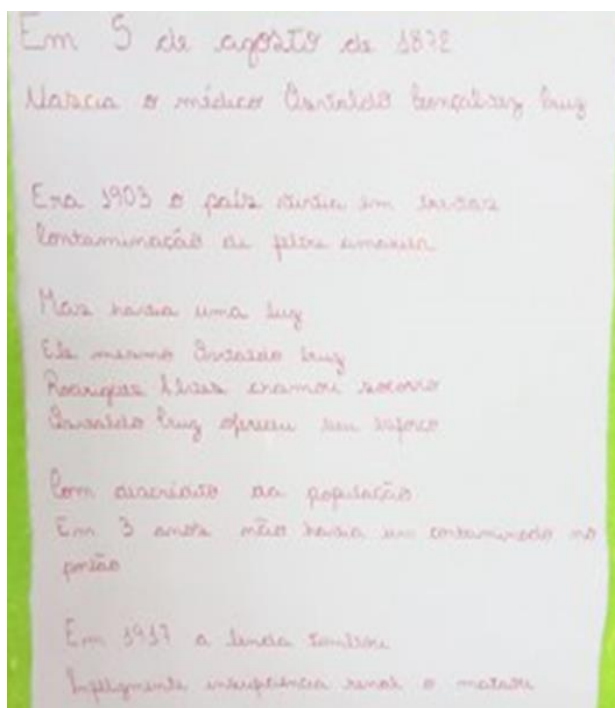 Em 5 de agosto de 1872
Nascia o médico Osvaldo Gonçalvez Cruz
Era 1903 o país vivia em
Contaminação de febre amarela
Mas havia uma luz
Ele mesmo Osvaldo Cruz
Rodrigues Alves chamou socorro
Osvaldo Cruz ofereceu seu esforço
Com descrédito da população
Em 3 anos não havia um contaminado no
portão
Em 1917 a lenda
Infelizmente insuficiência renal o